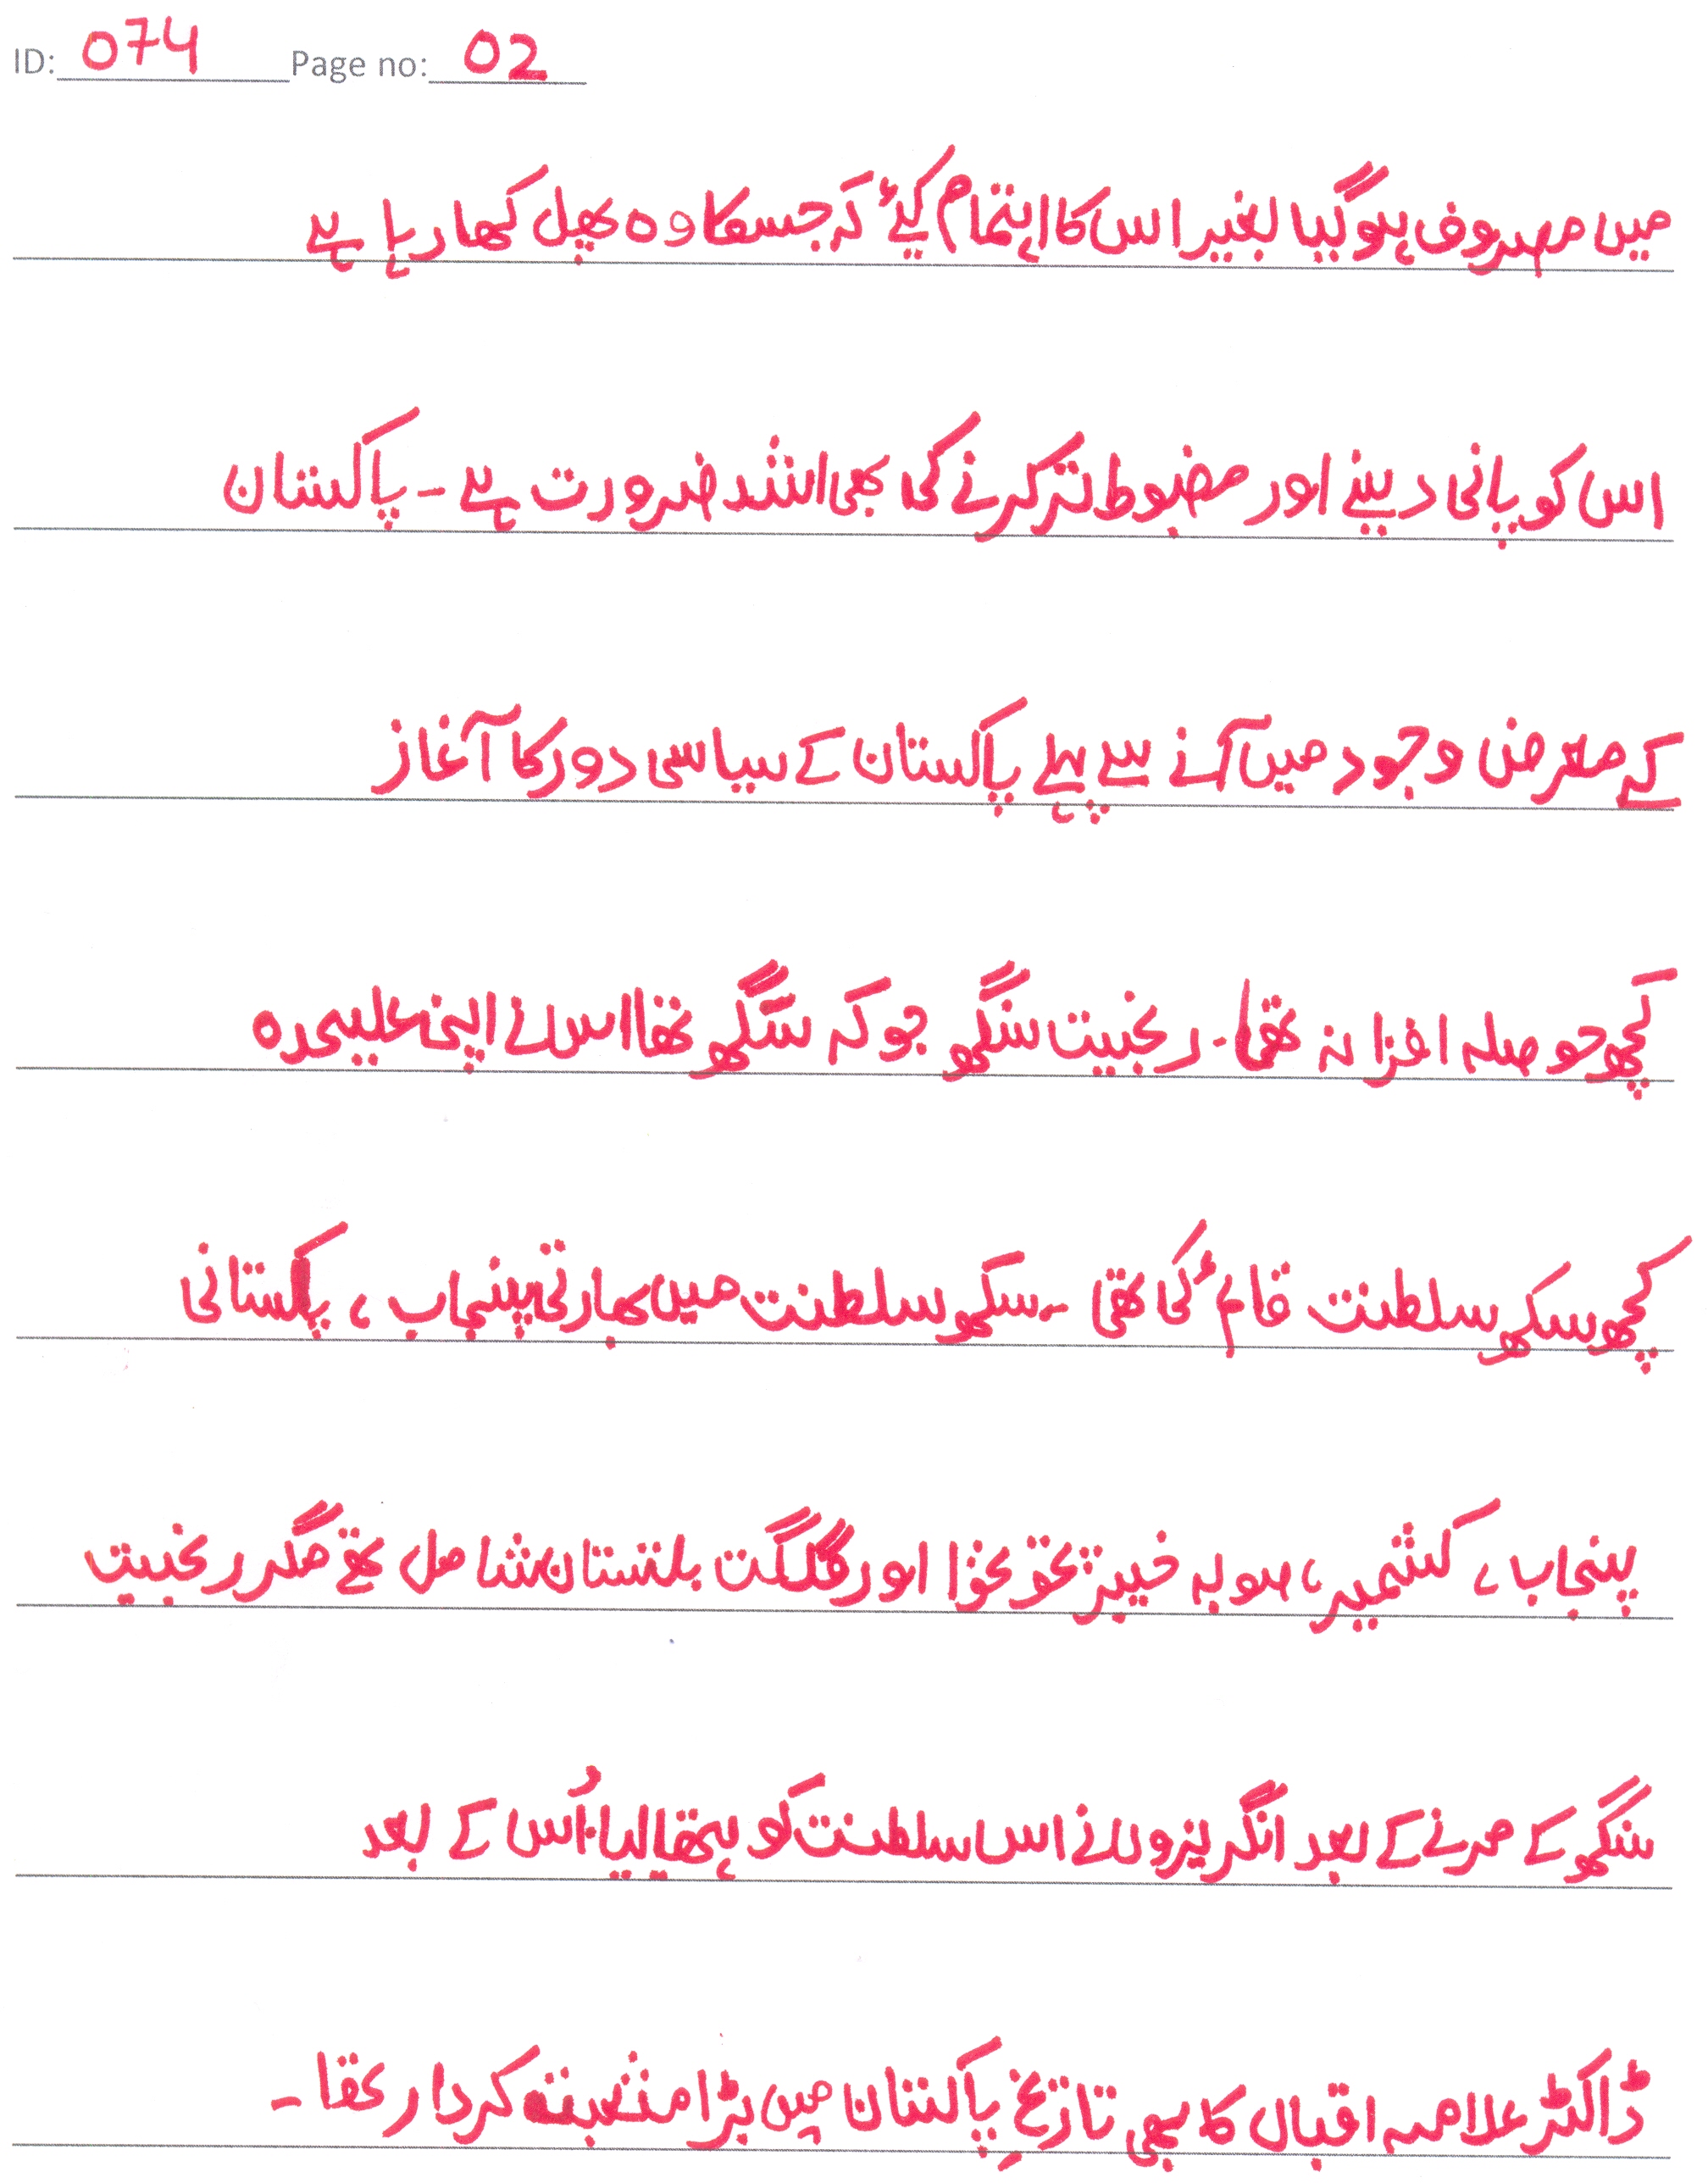 ID: 074 Page no: 02
میں مصروف ہوگیا بغیر اس کا اہتمام کیئے کہ جسکا وہ پھل کھا رہا ہے
اس کو پانی دینے اور مضبوط تر کرنے کی بھی اشد ضرورت ہے - پاکستان
کے معرض وجود میں آنے سے پہلے پاکستان کے سیاسی دور کا آغاز
کچھ حوصلہ افزا نہ تھا - رنجیت سنگھ جو کہ سنگھ تھا اس نے اپنی علیحدہ
کچھ سکھ سلطنت قائم کی تھی - سکھ سلطنت میں بھارتی پنجاب ، پاکستانی
پنجاب ، کشمیر ، صوبہ خیبر پختونخوا اور گلگت بلتستان شامل تھے مگر رنجیت
سنگھ کے مرنے کے بعد انگریزوں نے اس سلطنت کو ہتھیا لیا اُس کے بعد
ڈاکٹر علامہ اقبال کا بھی تاریخِ پاکستان میں بڑا مثبت کردار تھا -